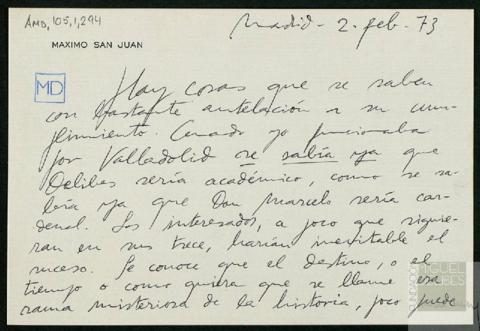 AMD, 105, 1, 294
Madrid - 2 - feb - 73
MAXIMO SAN JUAN
MD
Hay cosas que se saben
con bastante antelación a su cum-
plimiento. Cuando yo funcionaba
por Valladolid se sabía ya que
Delibes sería académico, como se sa-
bía ya que Don Marcelo sería car-
denal. Los interesados, a poco que siguie-
ran en sus trece, harían inevitable el
suceso. Se conoce que el destino, o el
tiempo o como quiera que se llame esa
rama misteriosa de la historia, poco puede
FUNDACIÓN
MIGUEL
DELIBES